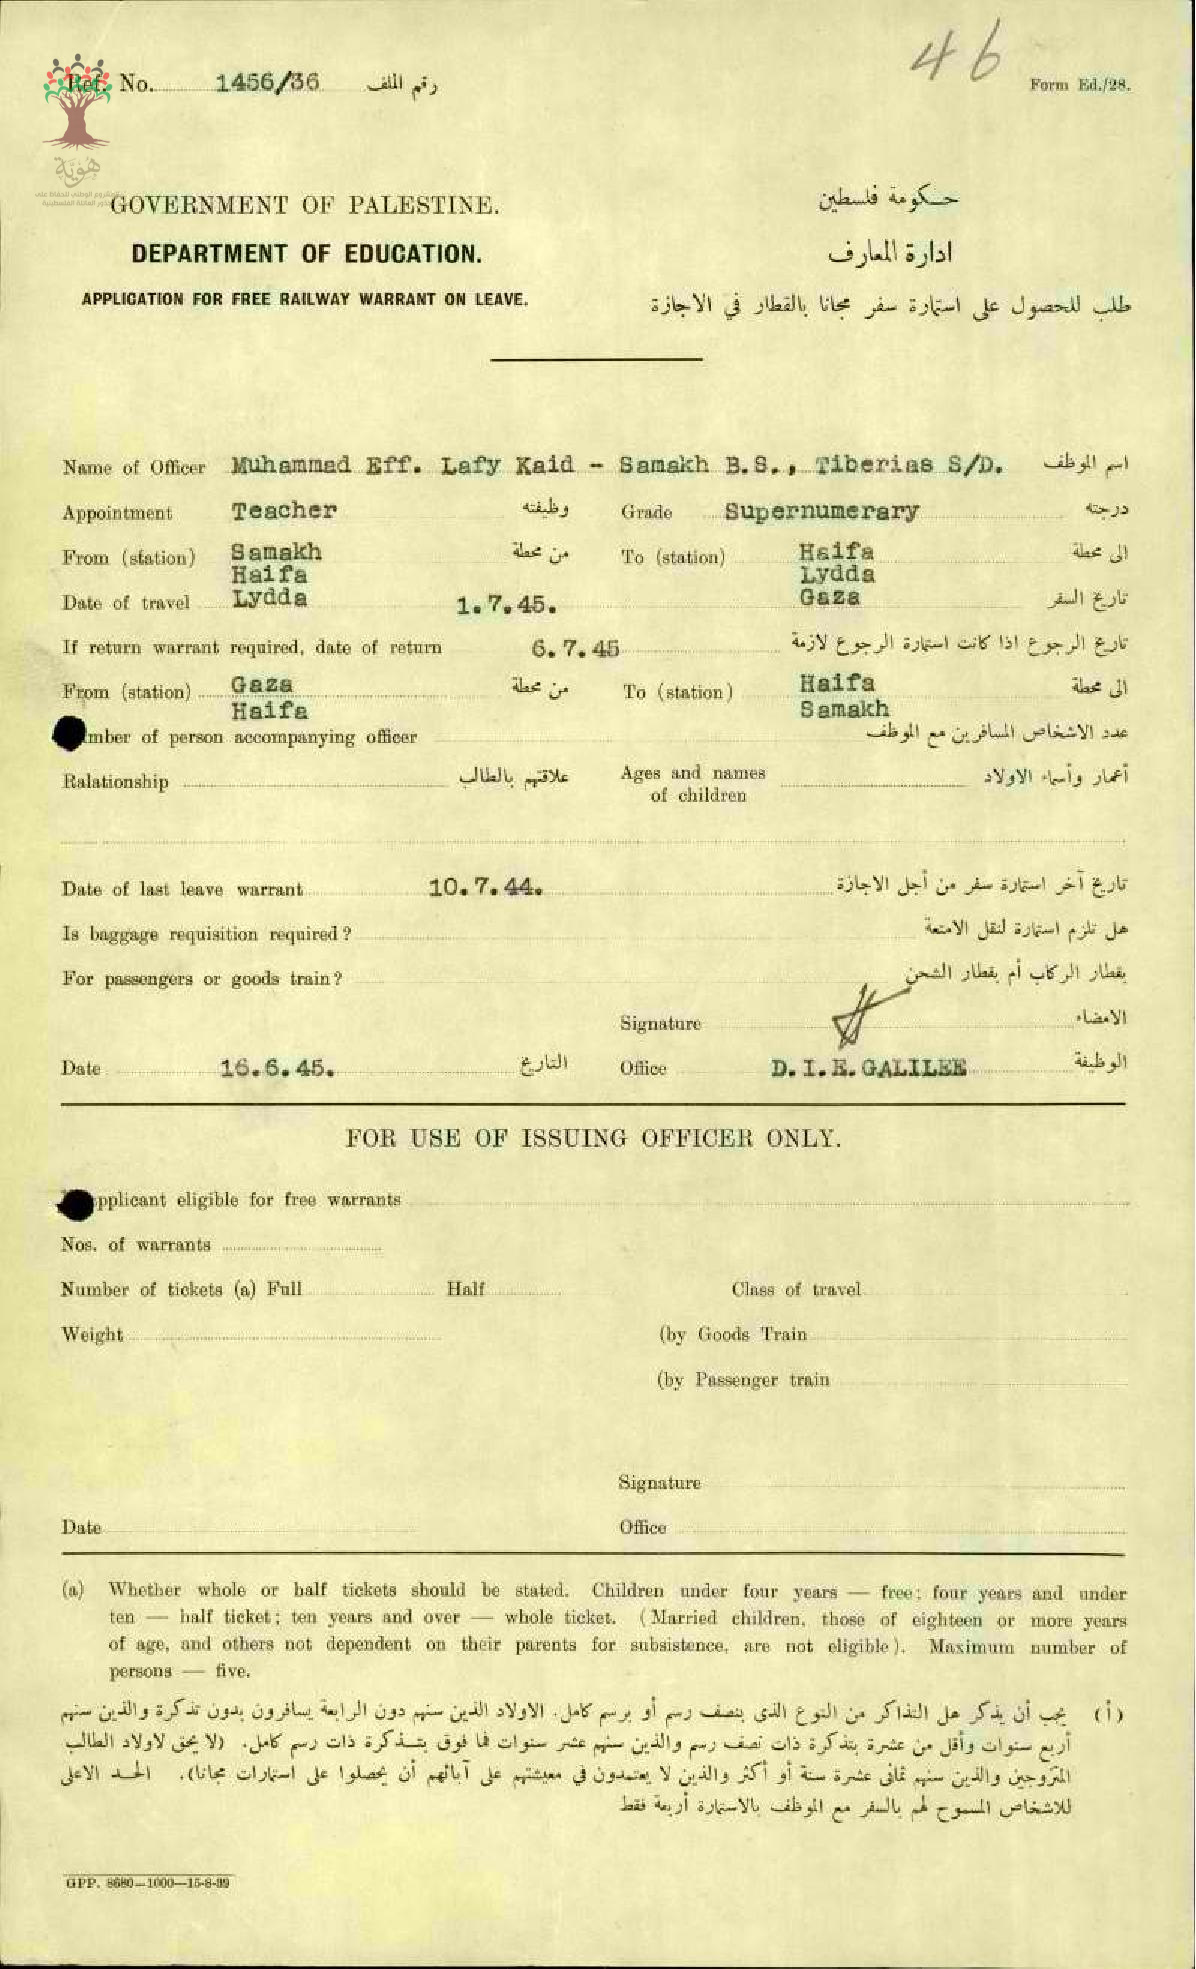 46
Ref. No. 1456/36 رقم الملف
Form Ed./28.
هُوِيَّة
GOVERNMENT OF PALESTINE. حكومة فلسطين
DEPARTMENT OF EDUCATION. ادارة المعارف
APPLICATION FOR FREE RAILWAY WARRANT ON LEAVE. طلب للحصول على استمارة سفر مجانا بالقطار في الاجازة
Name of Officer Muhammad Eff. Lafy Kaid - Samakh B.S., Tiberias S/D. اسم الموظف
Appointment Teacher وظيفته Grade Supernumerary درجته
From (station) Samakh من محطة To (station) Haifa الى محطة
Haifa Lydda
Date of travel Lydda 1.7.45. Gaza تاريخ السفر
If return warrant required, date of return 6.7.45 تاريخ الرجوع اذا كانت استمارة الرجوع لازمة
From (station) Gaza من محطة To (station) Haifa الى محطة
Haifa Samakh
mber of person accompanying officer عدد الاشخاص المسافرين مع الموظف
Ralationship علاقتهم بالطالب Ages and names أعمار وأسماء الاولاد
of children
Date of last leave warrant 10.7.44. تاريخ آخر استمارة سفر من أجل الاجازة
Is baggage requisition required? هل تلزم استمارة لنقل الامتعة
For passengers or goods train? بقطار الركاب أم بقطار الشحن
Signature الامضاء
Date 16.6.45. التاريخ Office D.I.E.GALILEE الوظيفة
FOR USE OF ISSUING OFFICER ONLY.
pplicant eligible for free warrants
Nos. of warrants
Number of tickets (a) Full Half Class of travel
Weight (by Goods Train
(by Passenger train
Signature
Date Office
(a) Whether whole or half tickets should be stated. Children under four years — free; four years and under
ten — half ticket; ten years and over — whole ticket. (Married children, those of eighteen or more years
of age, and others not dependent on their parents for subsistence, are not eligible). Maximum number of
persons — five.
(أ) يجب أن يذكر هل التذاكر من النوع الذي بنصف رسم أو برسم كامل. الاولاد الذين سنهم دون الرابعة يسافرون بدون تذكرة والذين سنهم
أربع سنوات وأقل من عشرة بتذكرة ذات نصف رسم والذين سنهم عشر سنوات فما فوق بتذكرة ذات رسم كامل. (لا يحق لاولاد الطالب
المتزوجين والذين سنهم ثماني عشرة سنة أو أكثر والذين لا يعتمدون في معيشتهم على آبائهم أن يحصلوا على استمارات مجانا). الحد الاعلى
للاشخاص المسموح لهم بالسفر مع الموظف بالاستمارة أربعة فقط
GPP. 8680—1000—15-8-39